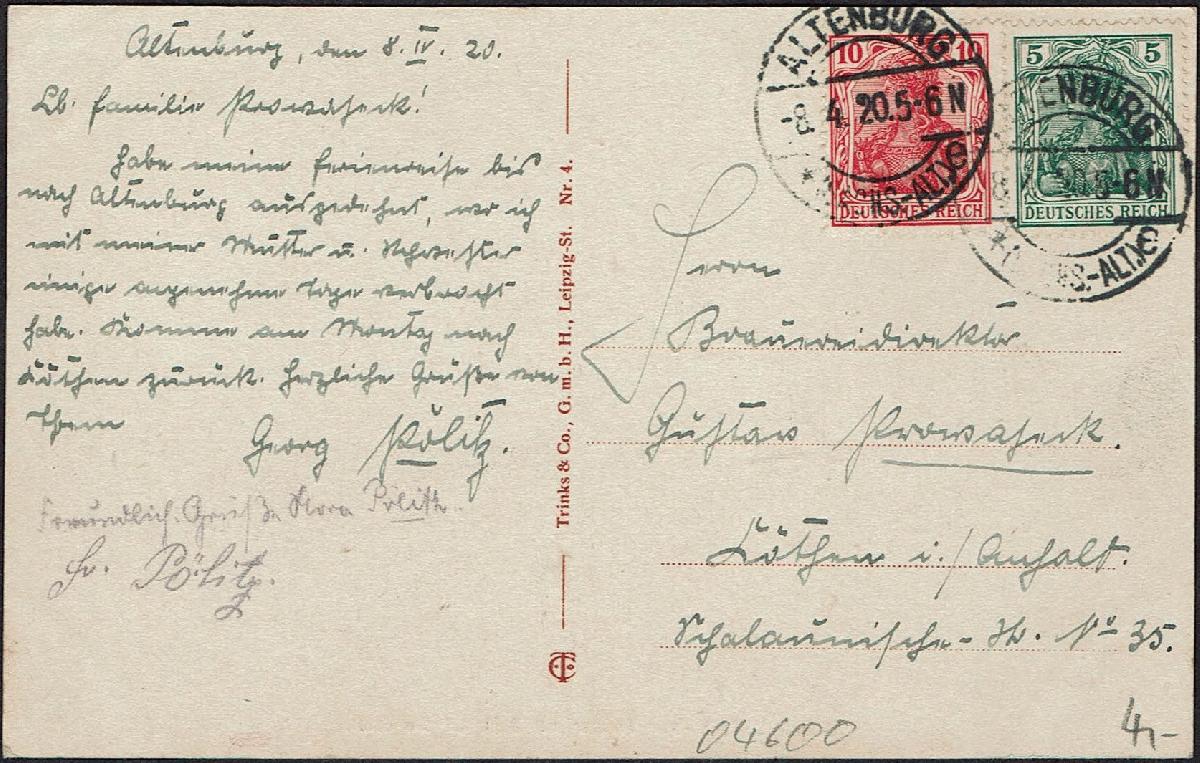 Altenburg, den 8. IV. 20.
Lb. Familie Prowaseck!
Habe meine Ferienreise bis
nach Altenburg ausgedehnt, wo ich
mit meiner Mutter u. Schwester
einige angenehme Tage verbracht
habe. Komme am Montag nach
Cöthen zurück. Herzliche Grüße von
Ihrem
Georg Pölitz.
Freundlich. Grüße Flora Pölitz.
Fr. Pölitz.
Trinks & Co., G. m. b. H., Leipzig-St. Nr. 4.
ALTENBURG
8. 4. 20. 5-6 N
10 10
DEUTSCHES REICH
5 5
DEUTSCHES REICH
ALTENBURG
5-6 N
Herrn
Brauereidirektor
Gustav Prowaseck.
Cöthen i./Anhalt.
Schalaunische-Str. No 35.
04600
4,-